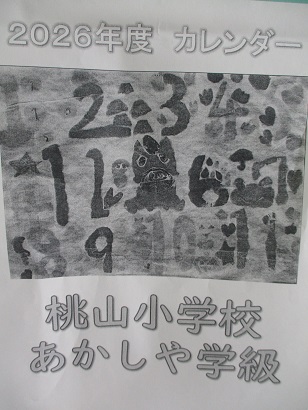 2026年度 カレンダー
2 3 4
1 1 6 7
9 10 11
桃山小学校
あかしや学級